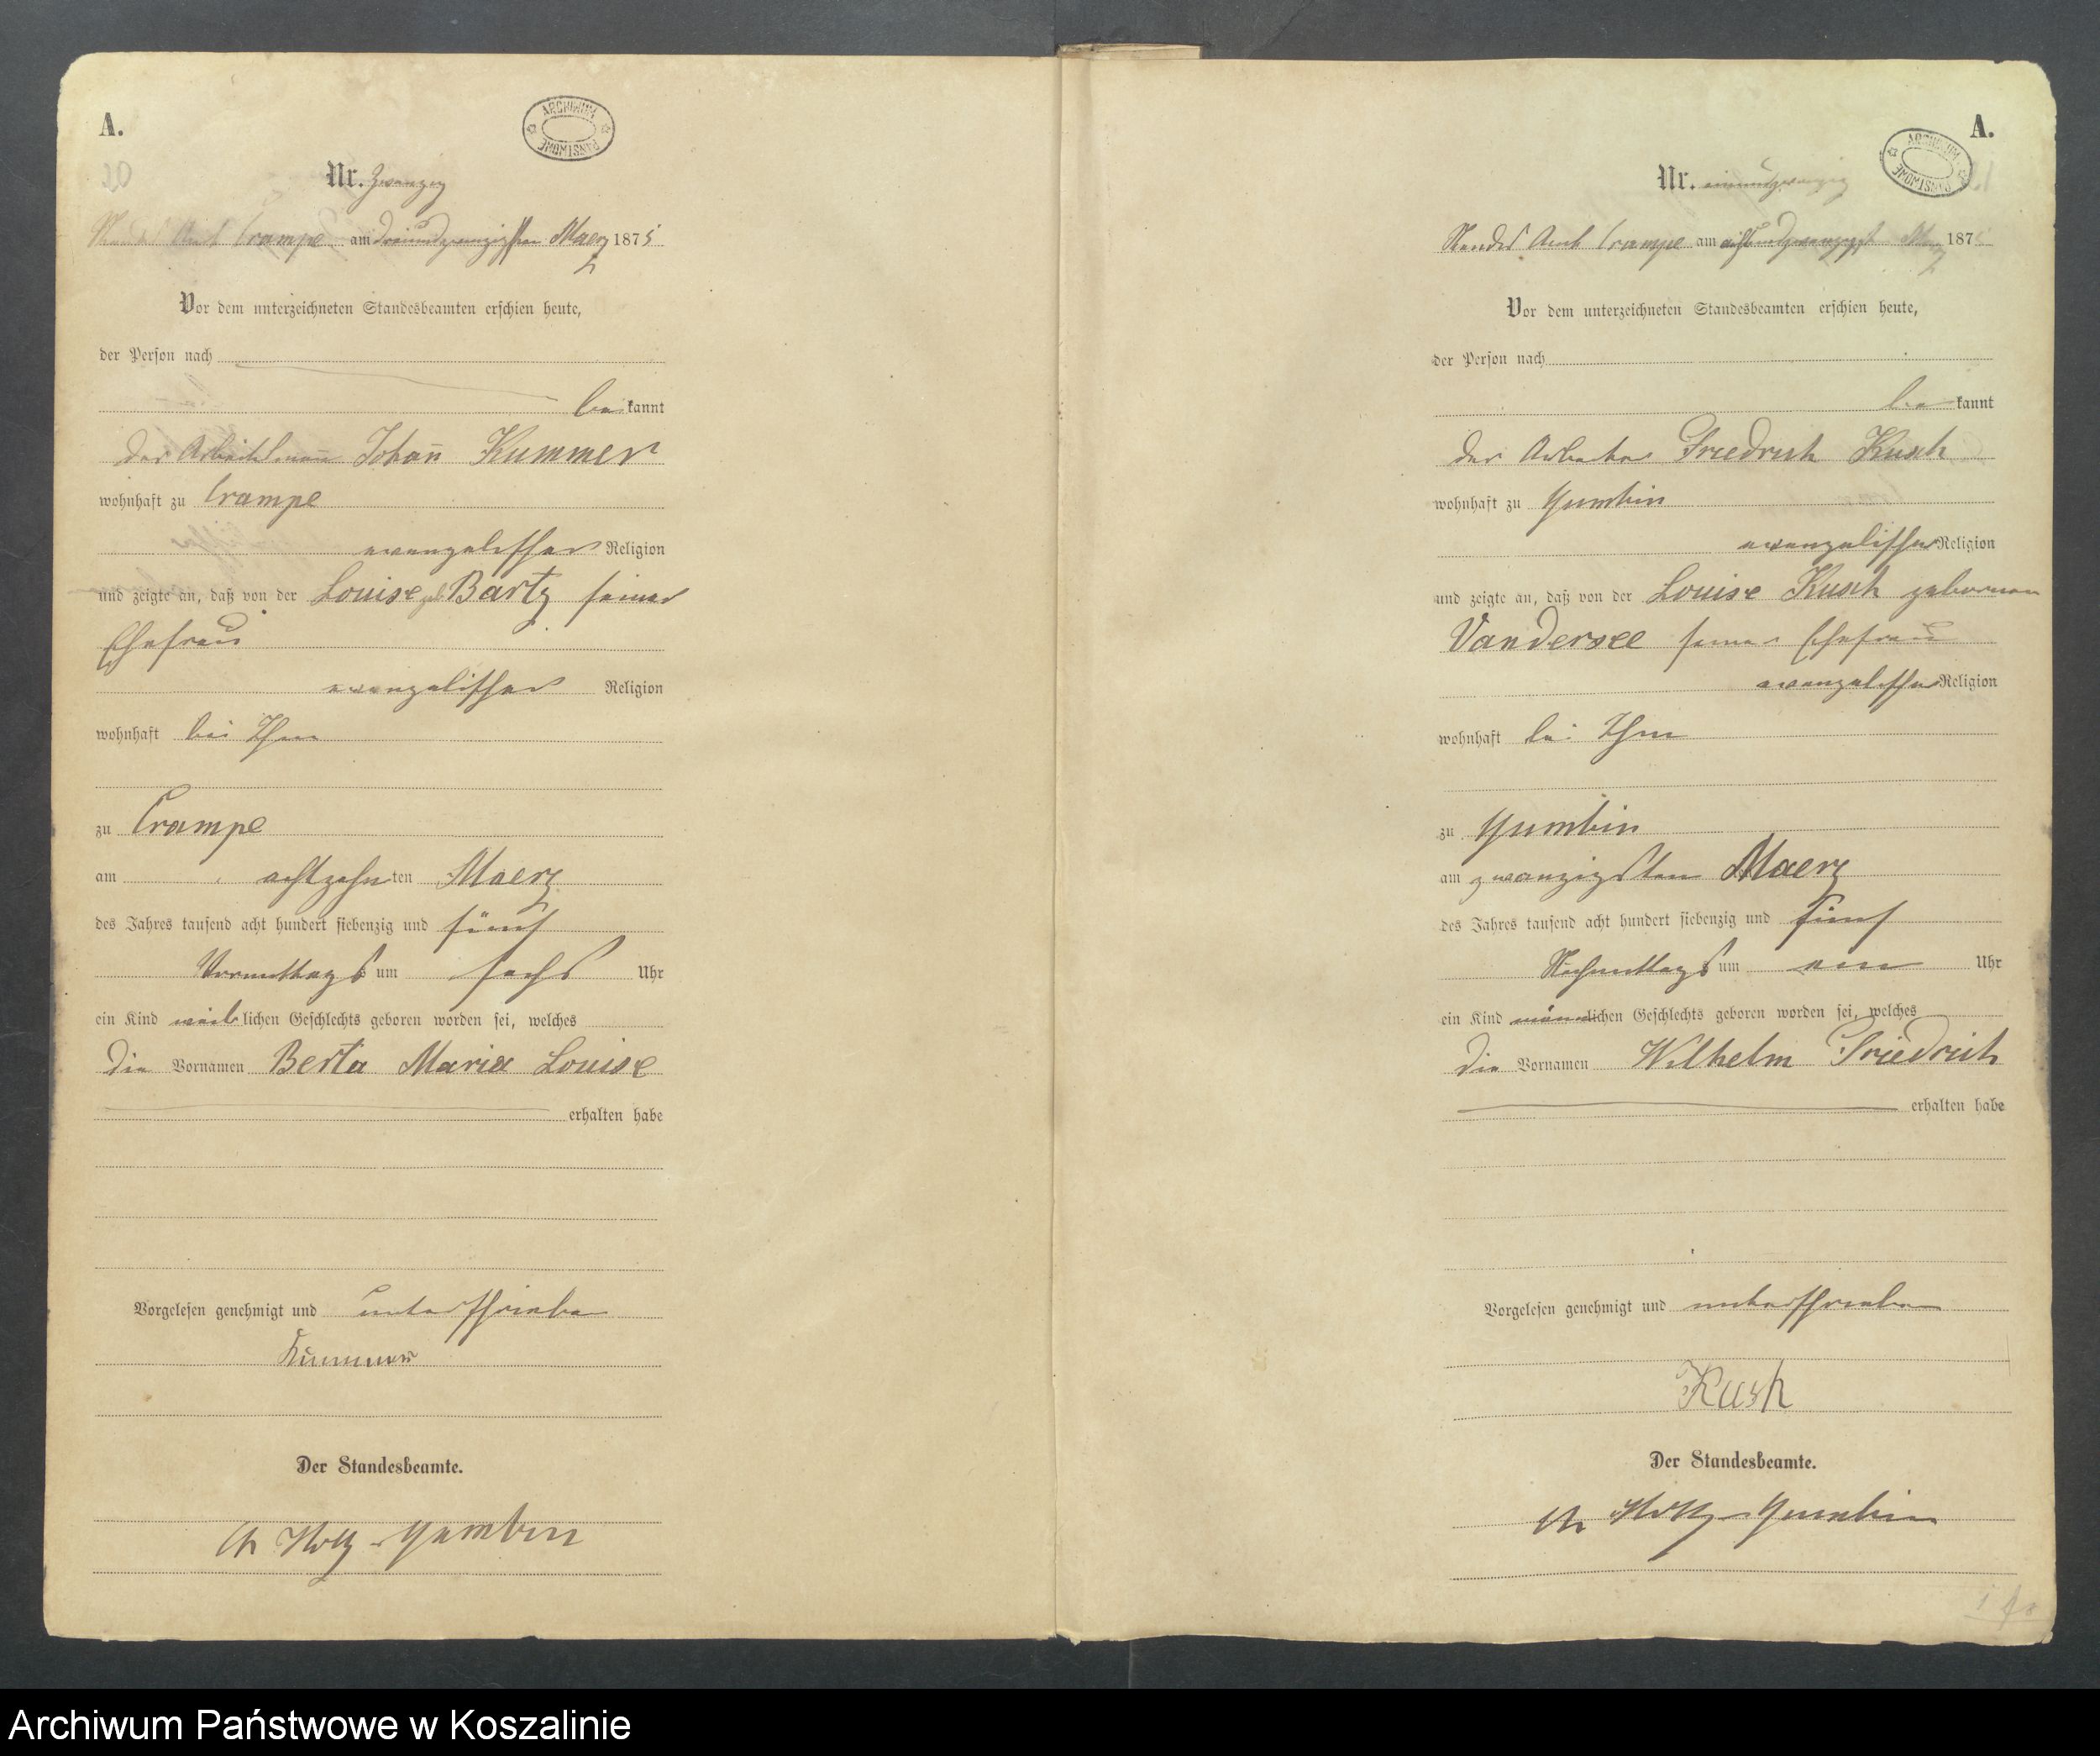 A.
ARCHIWUM PAŃSTWOWE
20
Nr. Zwanzig
Standes Amt Crampe am dreiundzwanzigsten Maerz 1875
Vor dem unterzeichneten Standesbeamten erschien heute,
der Person nach
bekannt
der Arbeitsmann Johan̄ Kummer
wohnhaft zu Crampe
evangelischer Religion
und zeigte an, daß von der Louise geb Bartz seiner
Ehefrau
evangelischer Religion
wohnhaft bei Ihm
zu Crampe
am achtzehnten Maerz
des Jahres tausend acht hundert siebenzig und fünf
Vormittags um sechs Uhr
ein Kind weiblichen Geschlechts geboren worden sei, welches
die Vornamen Berta Marie Louise
erhalten habe
Vorgelesen genehmigt und unterschrieben
Kummer
Der Standesbeamte.
Holtz - Gumbin
A.
ARCHIWUM PAŃSTWOWE
Nr. einundzwanzig
Standes Amt Crampe am achtundzwanzigst Maerz 187
Vor dem unterzeichneten Standesbeamten erschien heute,
der Person nach
bekannt
der Arbeiter Friedrich Kusch
wohnhaft zu Gumbin
evangelischer Religion
und zeigte an, daß von der Louise Kusch geborenen
Vandersee seiner Ehefrau
evangelischer Religion
wohnhaft bei Ihm
zu Gumbin
am zwanzigsten Maerz
des Jahres tausend acht hundert siebenzig und fünf
Nachmittags um ein Uhr
ein Kind männlichen Geschlechts geboren worden sei, welches
die Vornamen Wilhelm Friedrich
erhalten habe
Vorgelesen genehmigt und unterschrieben
Kush
Der Standesbeamte.
Holtz - Gumbin
Archiwum Państwowe w Koszalinie